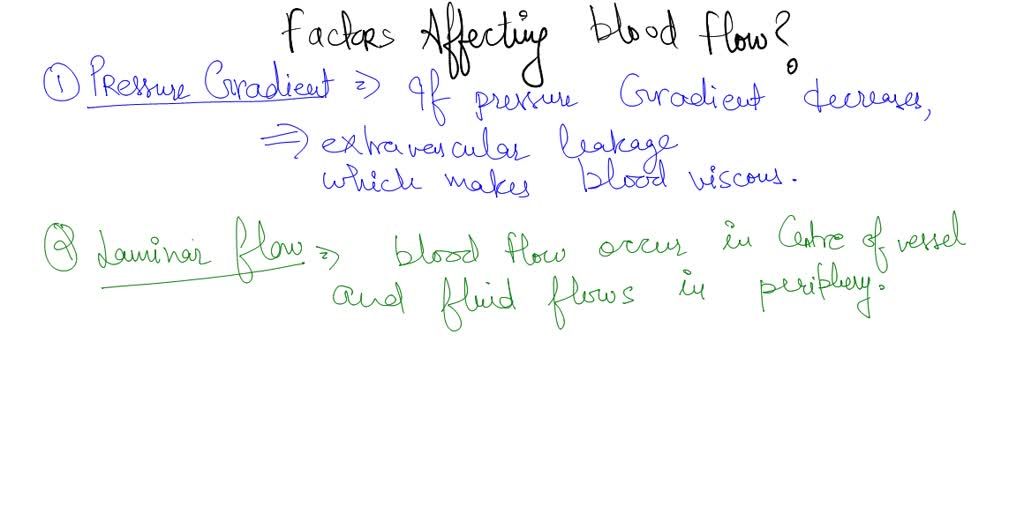 Factors Affecting blood flow?
① Pressure Gradient ⇒ If pressure Gradient decreases,
⇒ extravascular leakage
which makes blood viscous.
② Laminar flow ⇒ blood flow occur in Centre of vessel
and fluid flows in periphery.